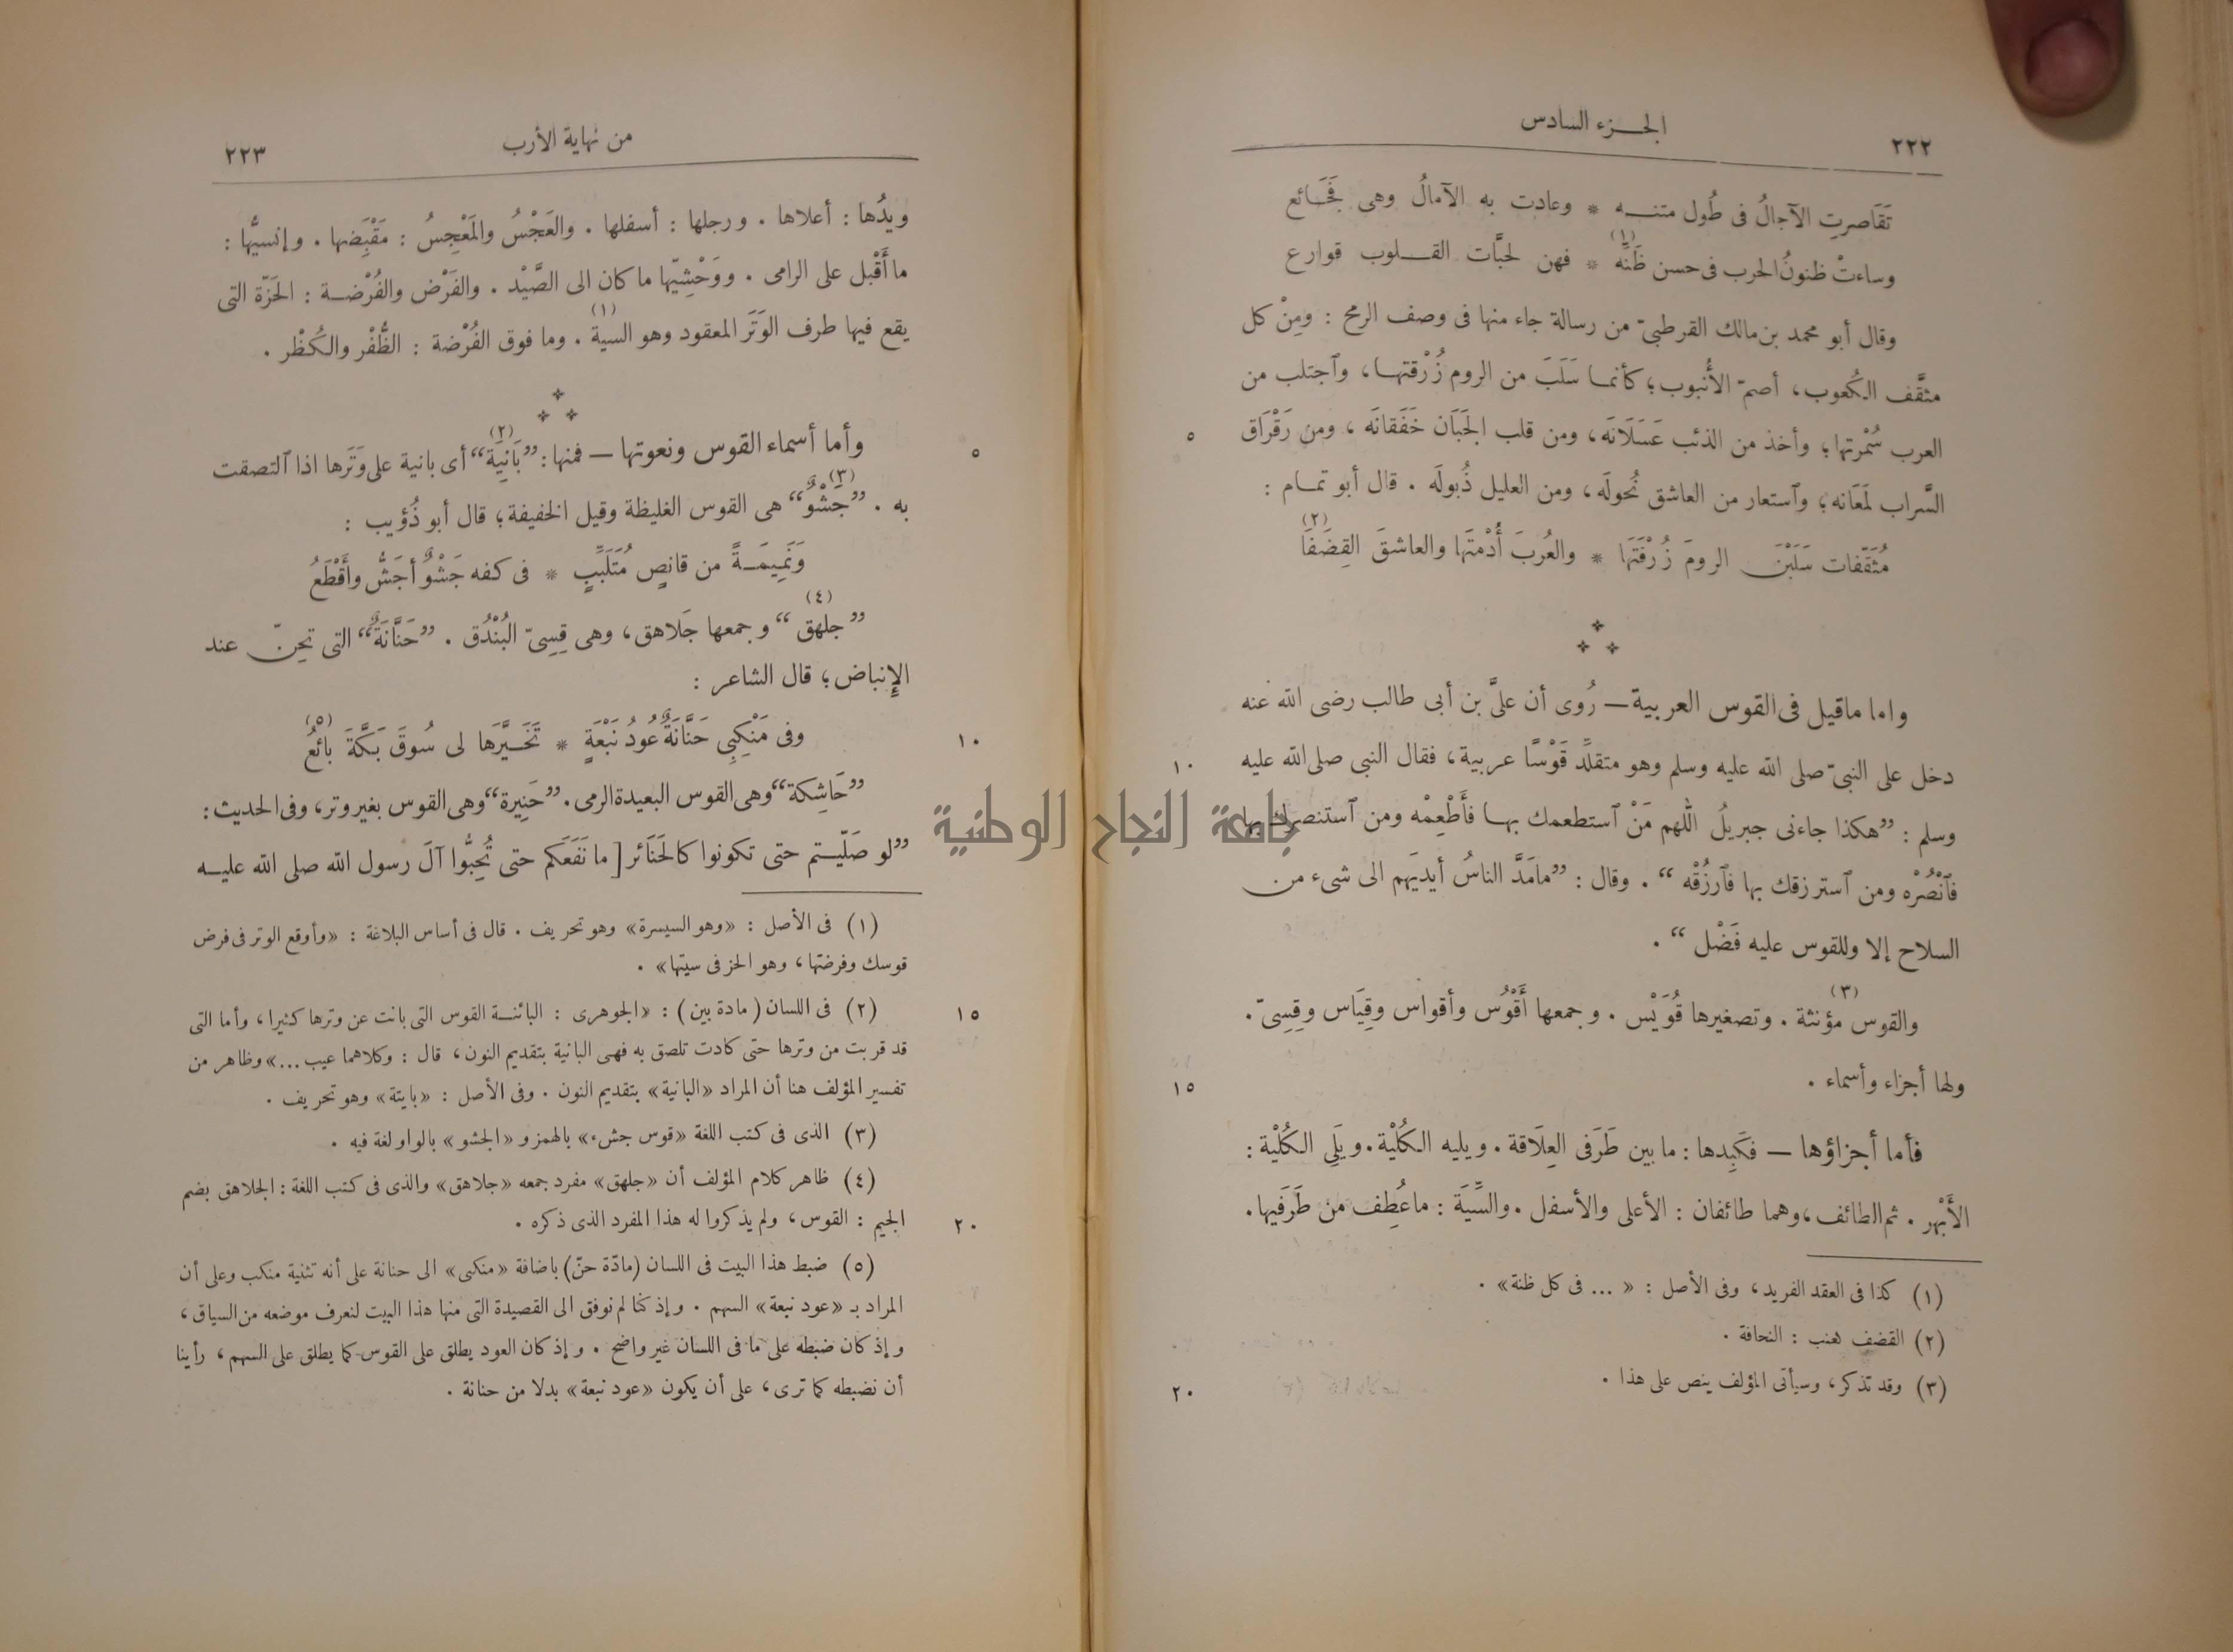 ٢٢٢
الجـــزء السادس
تَقَاصرتِ الآجالُ فى طُول متنـــه * وعادت به الآمالُ وهى فَجَائع
وساءتْ ظنونُ الحرب فى حسن ظَنِّه (١) * فهن لحبَّات القـــلوب قوارع
وقال أبو محمد بن مالك القرطبىّ من رسالة جاء منها فى وصف الرمح : ومِنْ كل
مثقَّف الكُعوب، أصمّ الأُنبوب؛ كأنمـا سَلَبَ من الروم زُرْقتهـا، وٱجتلب من
العرب سُمْرتها؛ وأخذ من الذئب عَسَلَانَه، ومن قلب الجَبَان خَفَقانَه ، ومن رَقْرَاق
٥
السَّراب لَمَعَانه؛ وٱستعار من العاشق نُحولَه، ومن العليل ذُبولَه . قال أبو تمـام :
مُثَقَّفات سَلَبْنَ الرومَ زُرْقَتَهَا * والعُربَ أُدْمتَها والعاشقَ القِضَفَا (٢)
واما ماقيل فى القوس العربية — رُوى أن علىَّ بن أبى طالب رضى الله عنه
دخل على النبىّ صلى الله عليه وسلم وهو متقلِّد قَوْسًا عربية، فقال النبى صلى الله عليه
١٠
وسلم : ”هكذا جاءنى جبريلُ اللّٰهم مَنْ ٱستطعمك بهـا فأَطْعِمْه ومن ٱستنصرك بها
فٱنْصُرْه ومن ٱسترزقك بها فٱرزُقْه“ . وقال : ”مامَدَّ الناسُ أيديَهم الى شىء من
السلاح إلا وللقوس عليه فَضْل“ .
والقوس مؤنثة (٣) . وتصغيرها قُوَيْس . وجمعها أَقْوُس وأقواس وقِيَاس وقِسِىّ .
ولها أجزاء وأسماء .
١٥
فأما أجزاؤها — فكَبِدها : ما بين طَرَفى العِلَاقة . ويليه الكُلْية . ويَلِى الكُلْية :
الأَبْهر . ثم الطائف، وهما طائفان : الأعلى والأسفل . والسِّيَة : ماعُطِف من طَرَفيها .
(١) كذا فى العقد الفريد، وفى الأصل : « ... فى كل ظنة» .
(٢) القضف كعنب : النحافة .
(٣) وقد تذكر، وسيأتى المؤلف ينص على هذا .
٢٠
من نهاية الأرب
٢٢٣
ويدُها : أعلاها . ورجلها : أسفلها . والعَجْسُ والمَعْجِسُ : مَقْبِضها . وإنسيُّها :
ما أَقْبل على الرامى . ووَحْشِيّها ما كان الى الصَّيْد . والفَرْض والفُرْضـة : الحَزّة التى
يقع فيها طرف الوَتَر المعقود وهو السية (١) . وما فوق الفُرْضة : الظُّفْر والكُظْر .
وأما أسماء القوس ونعوتها — فمنها : ”بَانِيَة“ (٢) أى بانية على وَتَرها اذا ٱلتصقت
٥
به . ”جَشْوٌ“ (٣) هى القوس الغليظة وقيل الخفيفة؛ قال أبو ذُؤيب :
وَنَمِيمَـةً من قانصٍ مُتَلَبِّبٍ * فى كفه جَشْوٌ أَجَشُّ وأَقْطَعُ
”جلهق“ (٤) وجمعها جَلاهق، وهى قِسِىّ البُنْدُق . ”حَنَّانَةٌ“ التى تحِنّ عند
الإنباض؛ قال الشاعر :
وفى مَنْكِبِى حَنَّانَةٌ عُودُ نَبْعَةٍ * تَخَـيَّرَها لى سُوقَ بَكَّةَ بائعُ (٥)
١٠
”حَاشِكة“ وهى القوس البعيدة الرمى . ”حَنِيرة“ وهى القوس بغير وتر، وفى الحديث :
”لو صَلّيـتم حتى تكونوا كالحَنَائر [ ما نَفَعَكم حتى تُحِبُّوا آلَ رسول الله صلى الله عليـه
(١) فى الأصل : «وهو السيسرة» وهو تحريف . قال فى أساس البلاغة : «وأوقع الوتر فى فرض
قوسك وفرضتها، وهو الحز فى سيتها» .
(٢) فى اللسان (مادة بين) : «الجوهرى : البائنـة القوس التى بانت عن وترها كثيرا، وأما التى
١٥
قد قربت من وترها حتى كادت تلصق به فهى البانية بتقديم النون، قال : وكلاهما عيب ...» وظاهر من
تفسير المؤلف هنا أن المراد «البانية» بتقديم النون . وفى الأصل : «بايتة» وهو تحريف .
(٣) الذى فى كتب اللغة «قوس جشء» بالهمز و «الجشو» بالواو لغة فيه .
(٤) ظاهر كلام المؤلف أن «جلهق» مفرد جمعه «جلاهق» والذى فى كتب اللغة : الجلاهق بضم
الجيم : القوس، ولم يذكروا له هذا المفرد الذى ذكره .
٢٠
(٥) ضبط هذا البيت فى اللسان (مادّة حنّ) باضافة «منكبى» الى حنانة على أنه تثنية منكب وعلى أن
المراد بـ «عود نبعة» السهم . وإذ كنا لم نوفق الى القصيدة التى منها هذا البيت لنعرف موضعه من السياق،
وإذ كان ضبطه على ما فى اللسان غير واضح . وإذ كان العود يطلق على القوس كما يطلق على السهم، رأينا
أن نضبطه كما ترى، على أن يكون «عود نبعة» بدلا من حنانة .
جامعة النجاح الوطنية